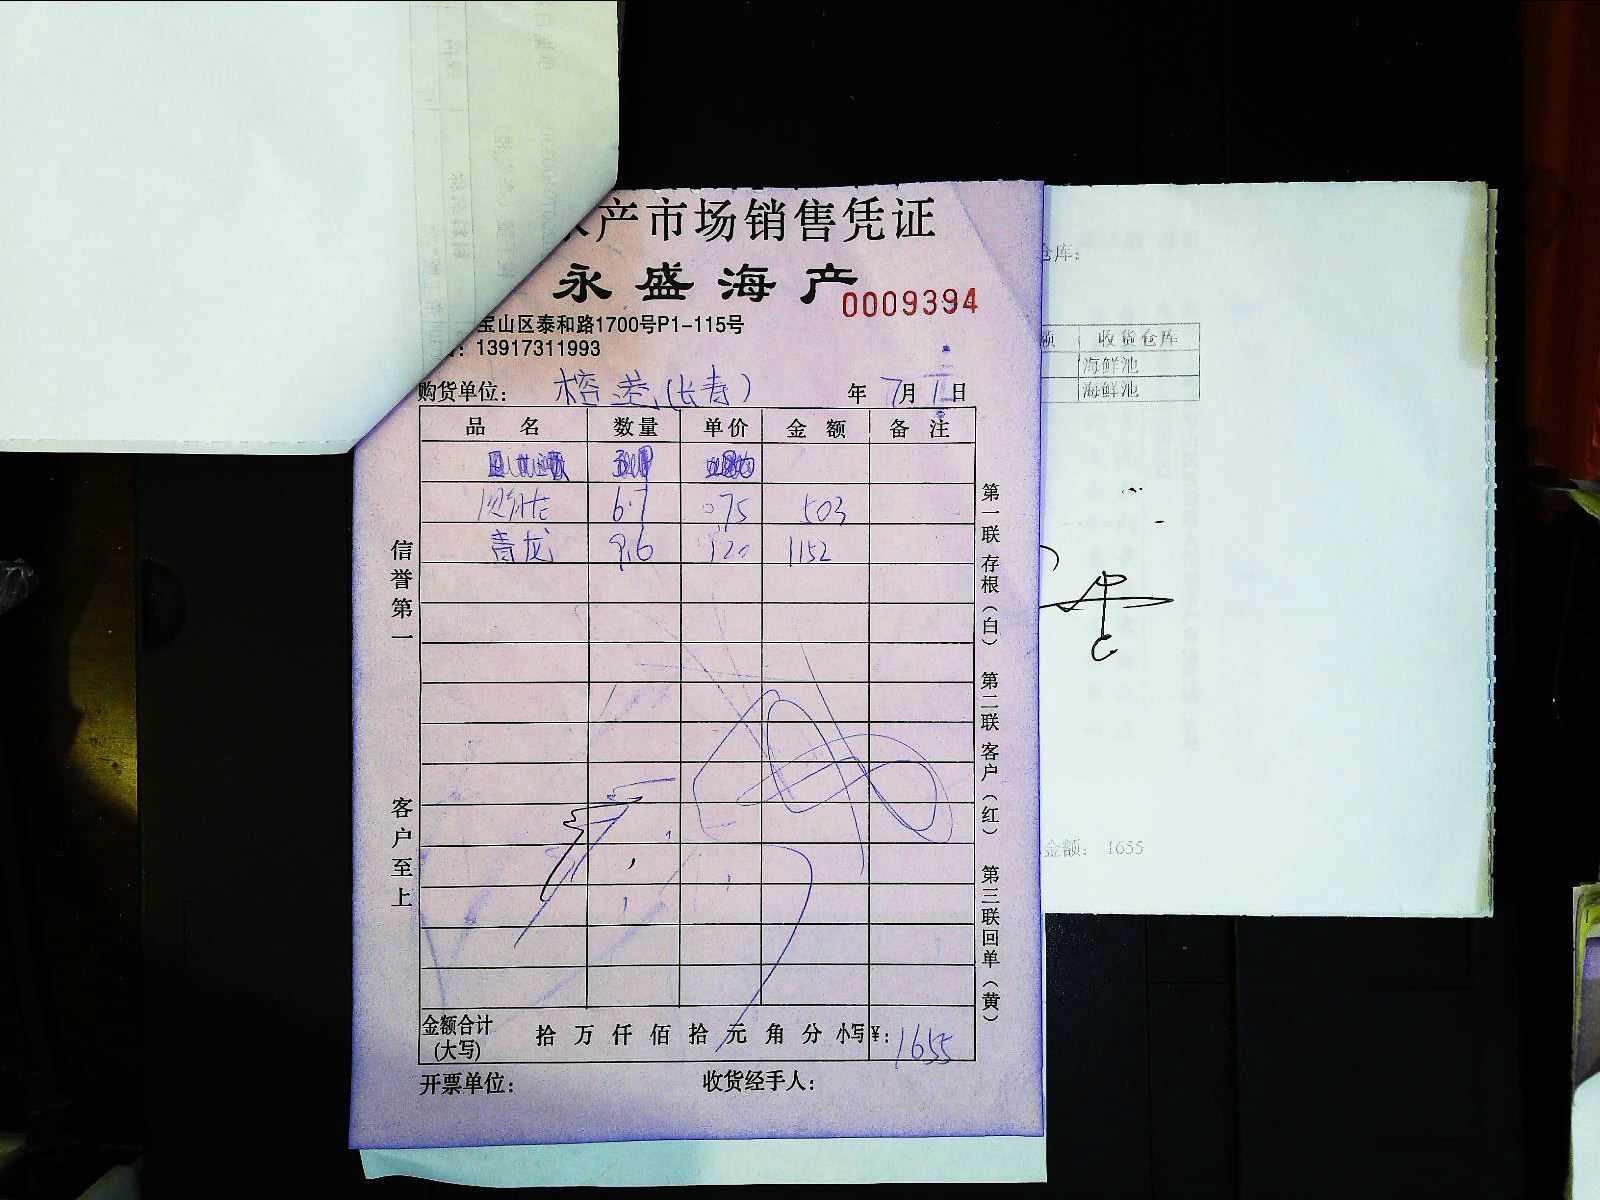 产市场销售凭证
永盛海产
0009394
宝山区泰和路1700号P1-115号
: 13917311993
购货单位: (长寿) 年 7月 日
品名 数量 单价 金额 备注
6.7 75 503
青龙 9.6 120 1152
信誉第一
客户至上
第一联 存根(白) 第二联 客户(红) 第三联 回单(黄)
金额合计(大写) 拾 万 仟 佰 拾 元 角 分 小写¥: 1655
开票单位: 收货经手人:
仓库:
额 收货仓库
海鲜池
海鲜池
金额: 1655